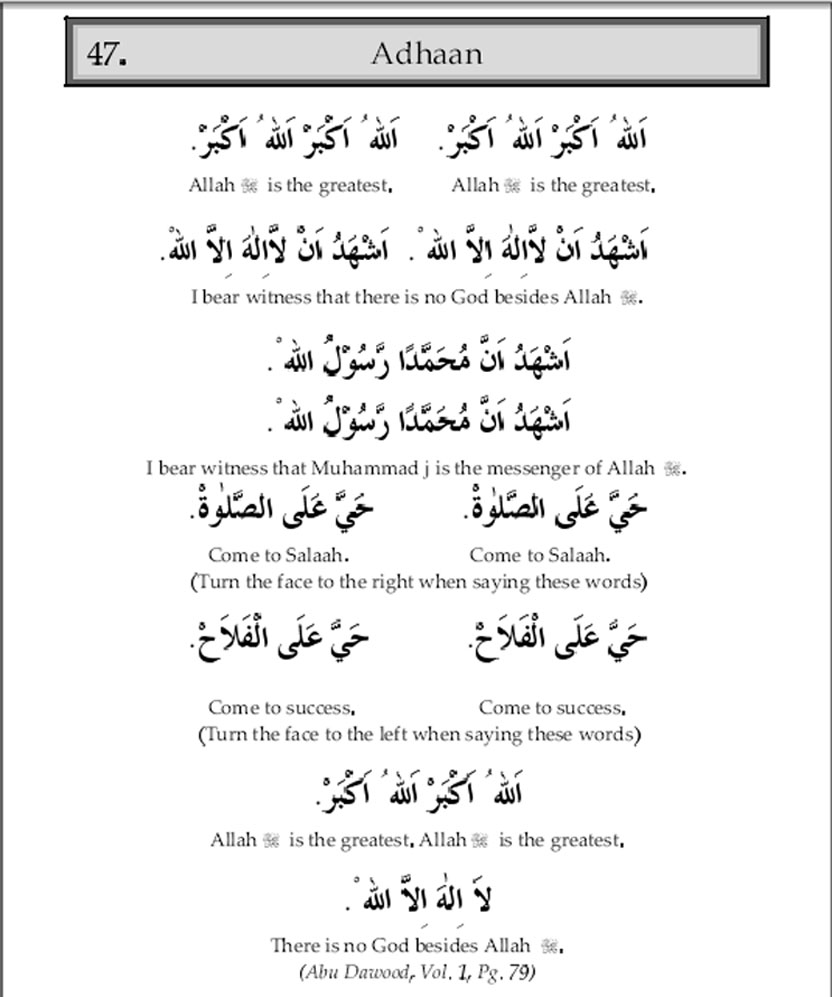 47. Adhaan
اَللهُ اَكْبَرْ اَللهُ اَكْبَرْ. اَللهُ اَكْبَرْ اَللهُ اَكْبَرْ.
Allah is the greatest. Allah is the greatest.
اَشْهَدُ اَنْ لَّااِلٰهَ اِلاَّ اللهْ. اَشْهَدُ اَنْ لَّااِلٰهَ اِلاَّ اللهْ.
I bear witness that there is no God besides Allah .
اَشْهَدُ اَنَّ مُحَمَّدًا رَّسُوْلُ اللهْ.
اَشْهَدُ اَنَّ مُحَمَّدًا رَّسُوْلُ اللهْ.
I bear witness that Muhammad j is the messenger of Allah .
حَيَّ عَلَى الصَّلٰوةْ. حَيَّ عَلَى الصَّلٰوةْ.
Come to Salaah. Come to Salaah.
(Turn the face to the right when saying these words)
حَيَّ عَلَى الْفَلاَحْ. حَيَّ عَلَى الْفَلاَحْ.
Come to success. Come to success.
(Turn the face to the left when saying these words)
اَللهُ اَكْبَرْ اَللهُ اَكْبَرْ.
Allah is the greatest. Allah is the greatest.
لاَ اِلٰهَ اِلاَّ اللهْ.
There is no God besides Allah .
(Abu Dawood, Vol. 1, Pg. 79)